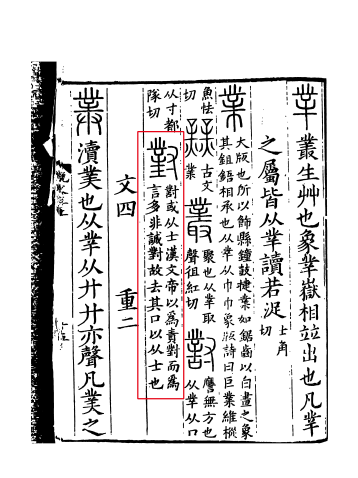 丵 叢生艸也象丵嶽相竝出也凡丵
之屬皆从丵讀若浞 士角
切
業 大版也所以飾縣鐘鼓捷業如鋸齒以白畫之象
其鉏鋙相承也从丵从巾巾象版詩曰巨業維樅
魚怯
切
古文
業
叢 聚也从丵取
聲徂紅切
對 譍無方也
从丵从口
从寸都
隊切
對 對或从士漢文帝以爲責對而爲
言多非誠對故去其口以从士也
文四 重二
菐 瀆菐也从丵从廾廾亦聲凡菐之